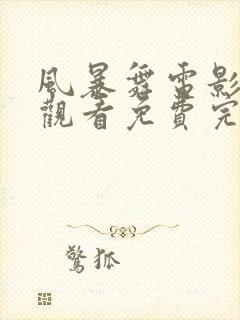 風暴舞電影
觀看免費完
驚狐